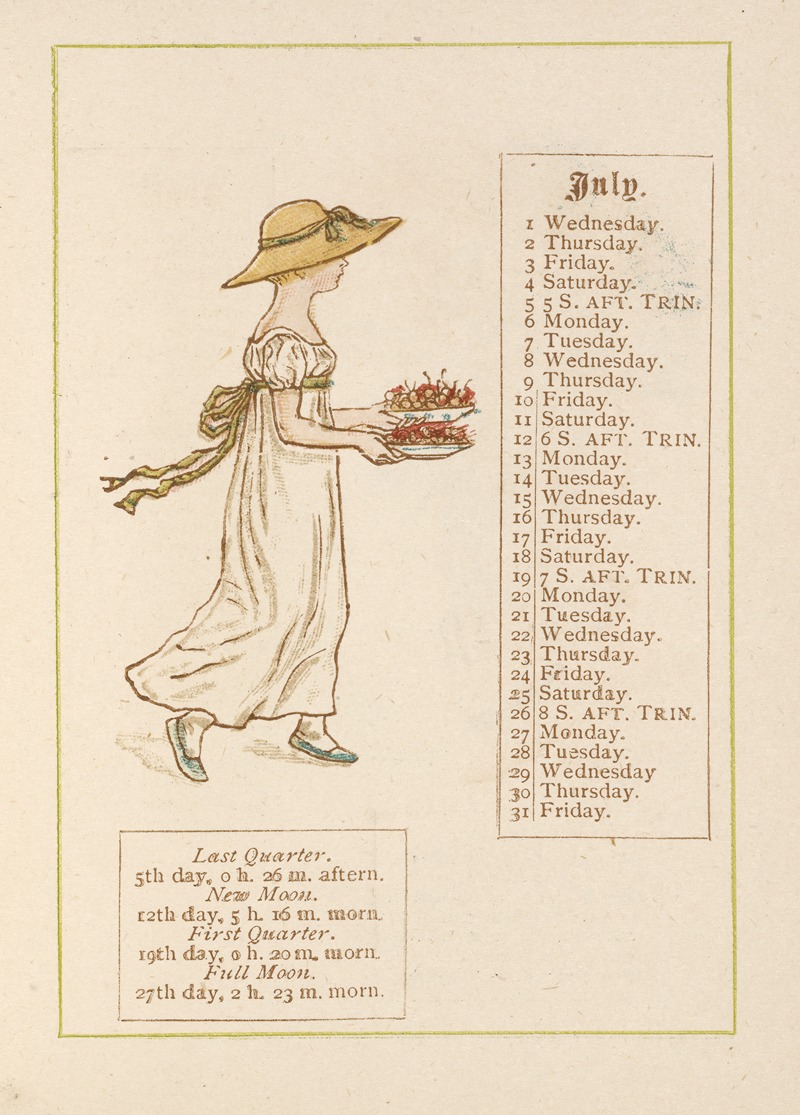 July.
1 Wednesday.
2 Thursday.
3 Friday.
4 Saturday.
5 5 S. AFT. TRIN.
6 Monday.
7 Tuesday.
8 Wednesday.
9 Thursday.
10 Friday.
11 Saturday.
12 6 S. AFT. TRIN.
13 Monday.
14 Tuesday.
15 Wednesday.
16 Thursday.
17 Friday.
18 Saturday.
19 7 S. AFT. TRIN.
20 Monday.
21 Tuesday.
22 Wednesday.
23 Thursday.
24 Friday.
25 Saturday.
26 8 S. AFT. TRIN.
27 Monday.
28 Tuesday.
29 Wednesday
30 Thursday.
31 Friday.
Last Quarter.
5th day, 0 h. 26 m. aftern.
New Moon.
12th day, 5 h. 16 m. morn.
First Quarter.
19th day, 0 h. 20 m. morn.
Full Moon.
27th day, 2 h. 23 m. morn.